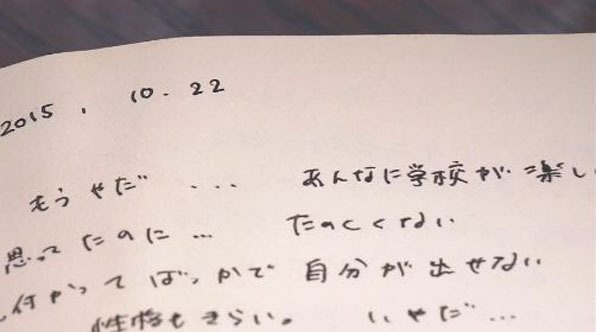 2015. 10. 22
もうやだ... あんなに学校が楽し
思ってたのに... たのしくない
付かってばっかで 自分が出せない
性格もきらい。 いやだ...